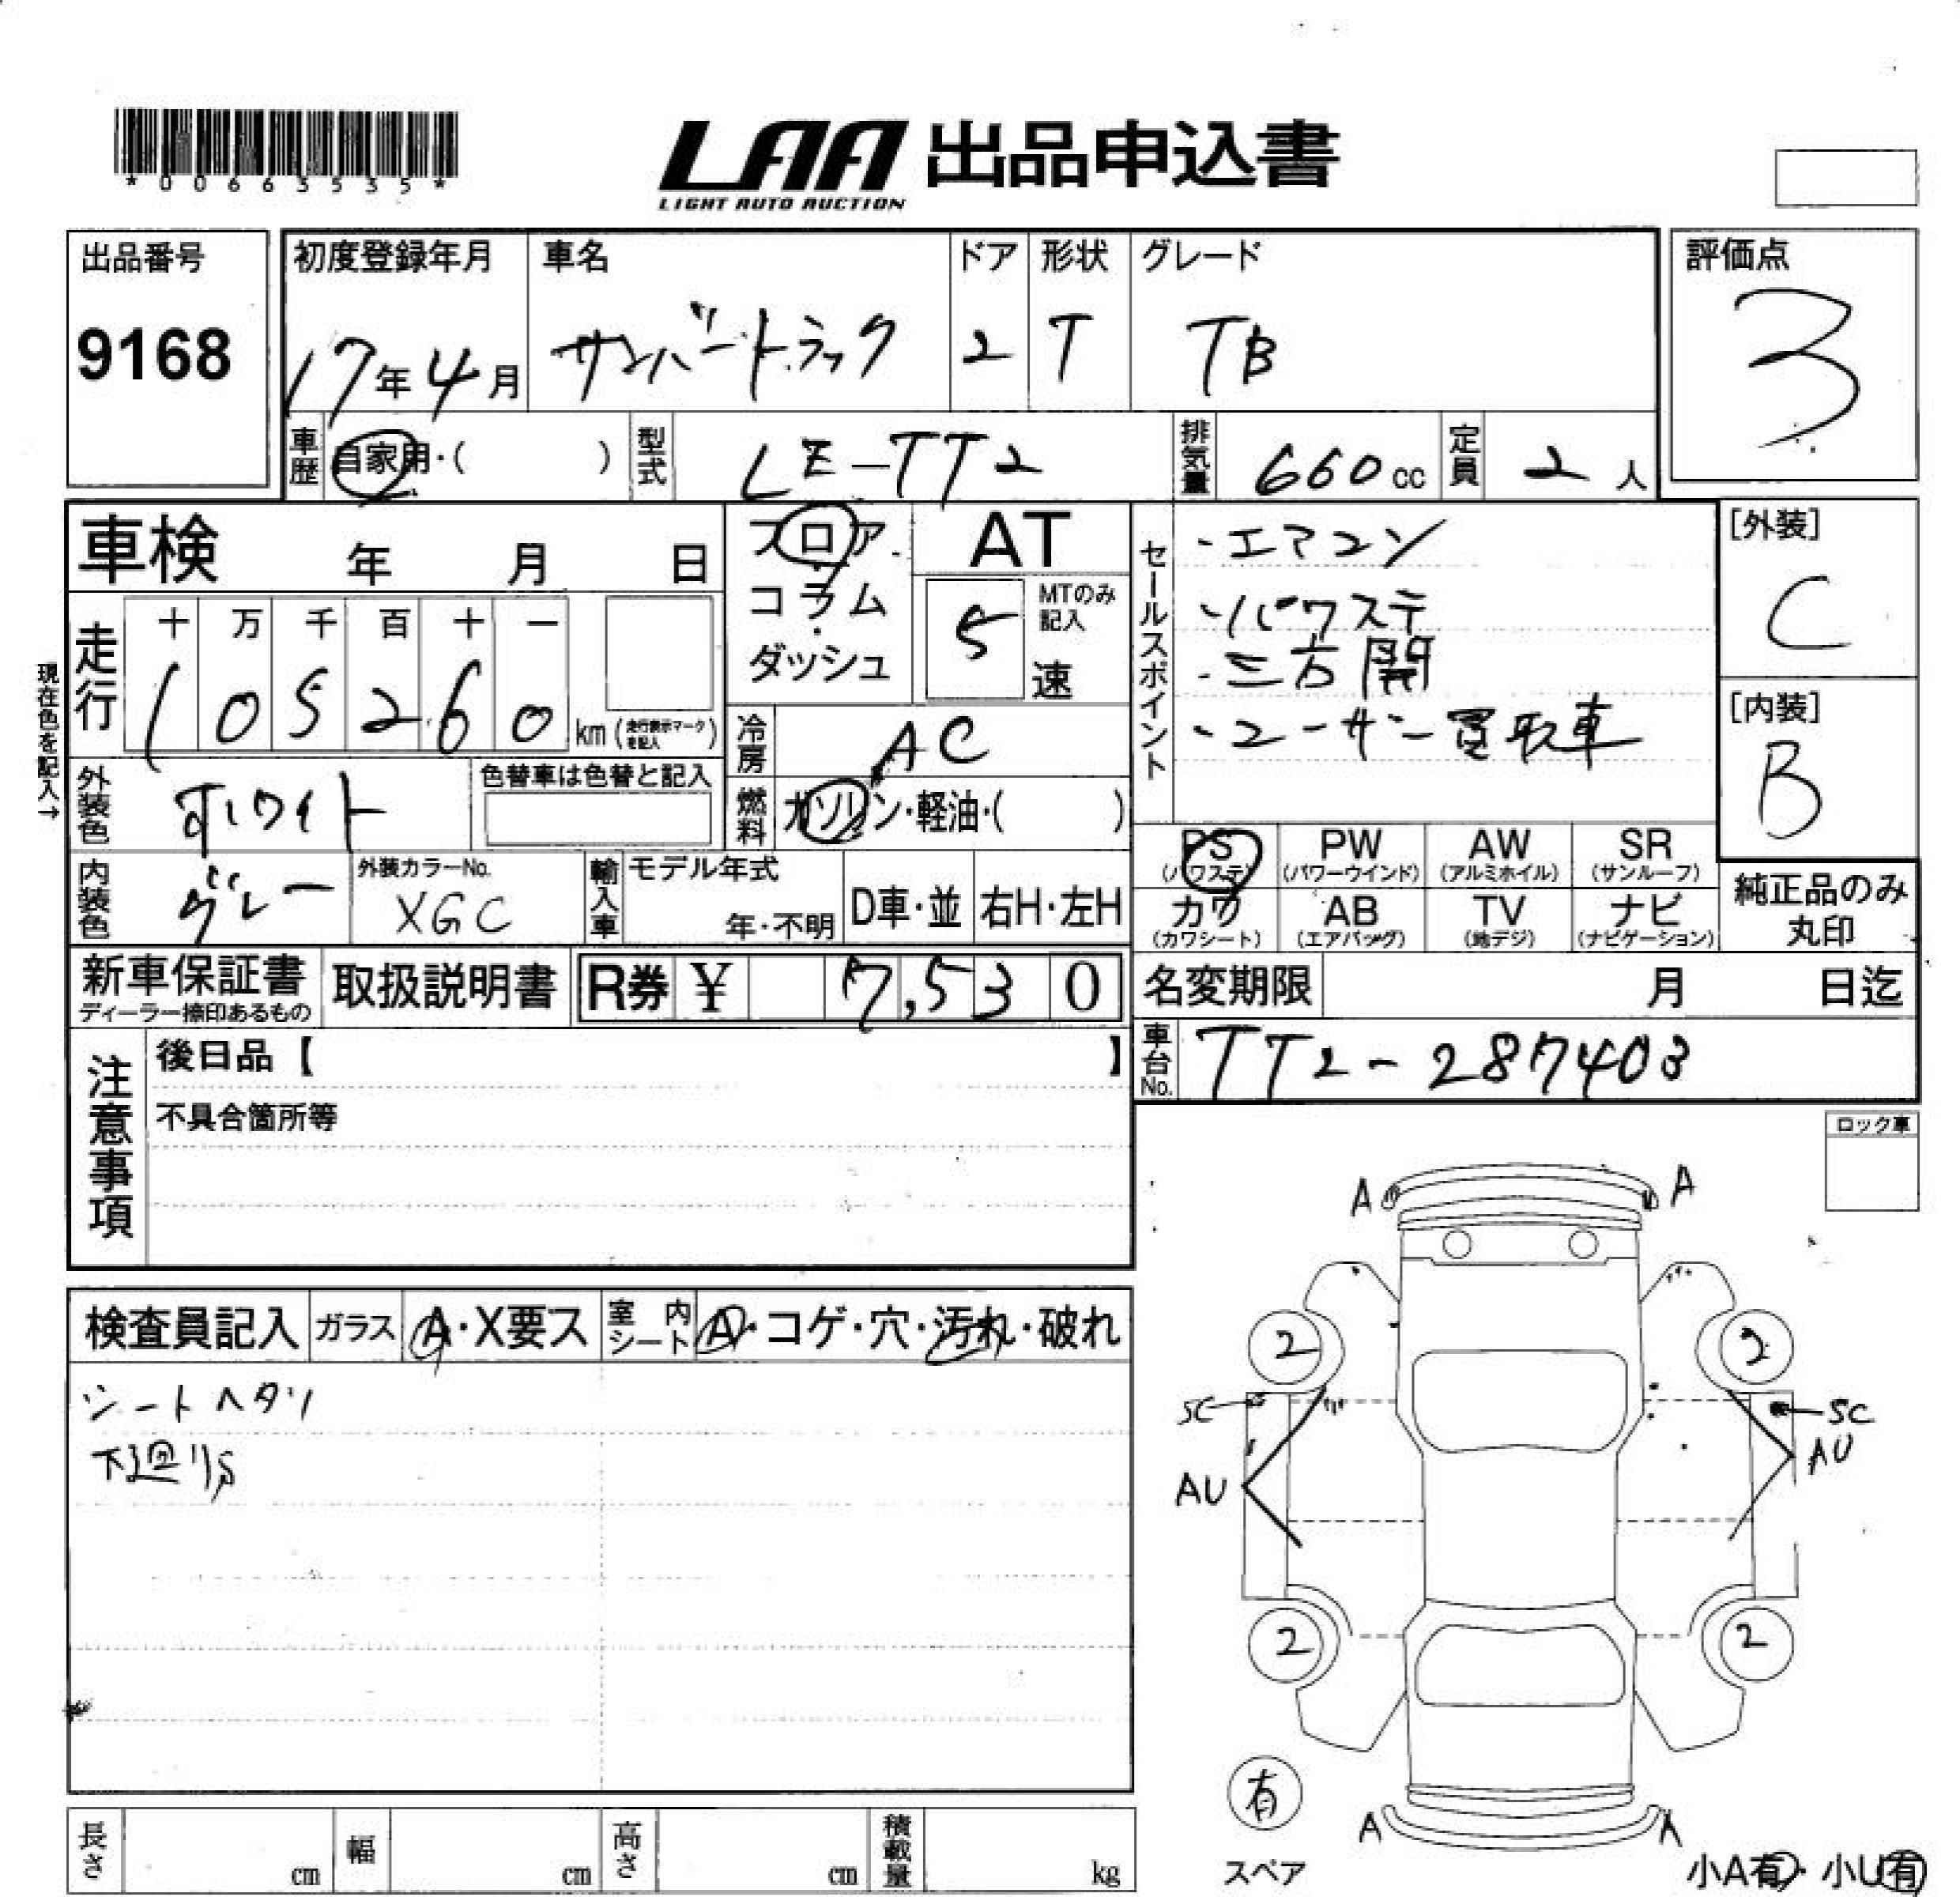 *00663535*
LAA 出品申込書
LIGHT AUTO AUCTION
出品番号
9168
初度登録年月
17年4月
車名
サンバートラック
ドア
2
形状
T
グレード
TB
評価点
3
車歴 自家用・( )
型式 LE-TT2
排気量 660cc
定員 2人
車検 年 月 日
フロア・コラム・ダッシュ
AT
5速
MTのみ記入
セールスポイント
・エアコン
・パワステ
・三方開
・ユーザー買取車
[外装]
C
[内装]
B
現在色を記入→
走行
十 万 千 百 十 一
1 0 5 2 6 0 km(走行表示マークを記入)
冷房 AC
外装色 ホワイト
色替車は色替と記入
燃料 ガソリン・軽油・( )
内装色 グレー
外装カラーNo.
XGC
輸入車
モデル年式
年・不明
D車・並
右H・左H
PS (パワステ)
PW (パワーウインド)
AW (アルミホイル)
SR (サンルーフ)
カワ (カワシート)
AB (エアバッグ)
TV (地デジ)
ナビ (ナビゲーション)
純正品のみ丸印
新車保証書
ディーラー捺印あるもの
取扱説明書
R券 ¥ 7,530
名変期限 月 日迄
車台No. TT2-287403
注意事項
後日品【 】
不具合箇所等
ロック車
検査員記入
ガラス A・X要ス
室内シート A・コゲ・穴・汚れ・破れ
シートヘタリ
下廻りS
A A
2 2
SC SC
AU AU
2 2
有
スペア
A A
小A有・小U有
長さ cm
幅 cm
高さ cm
積載量 kg